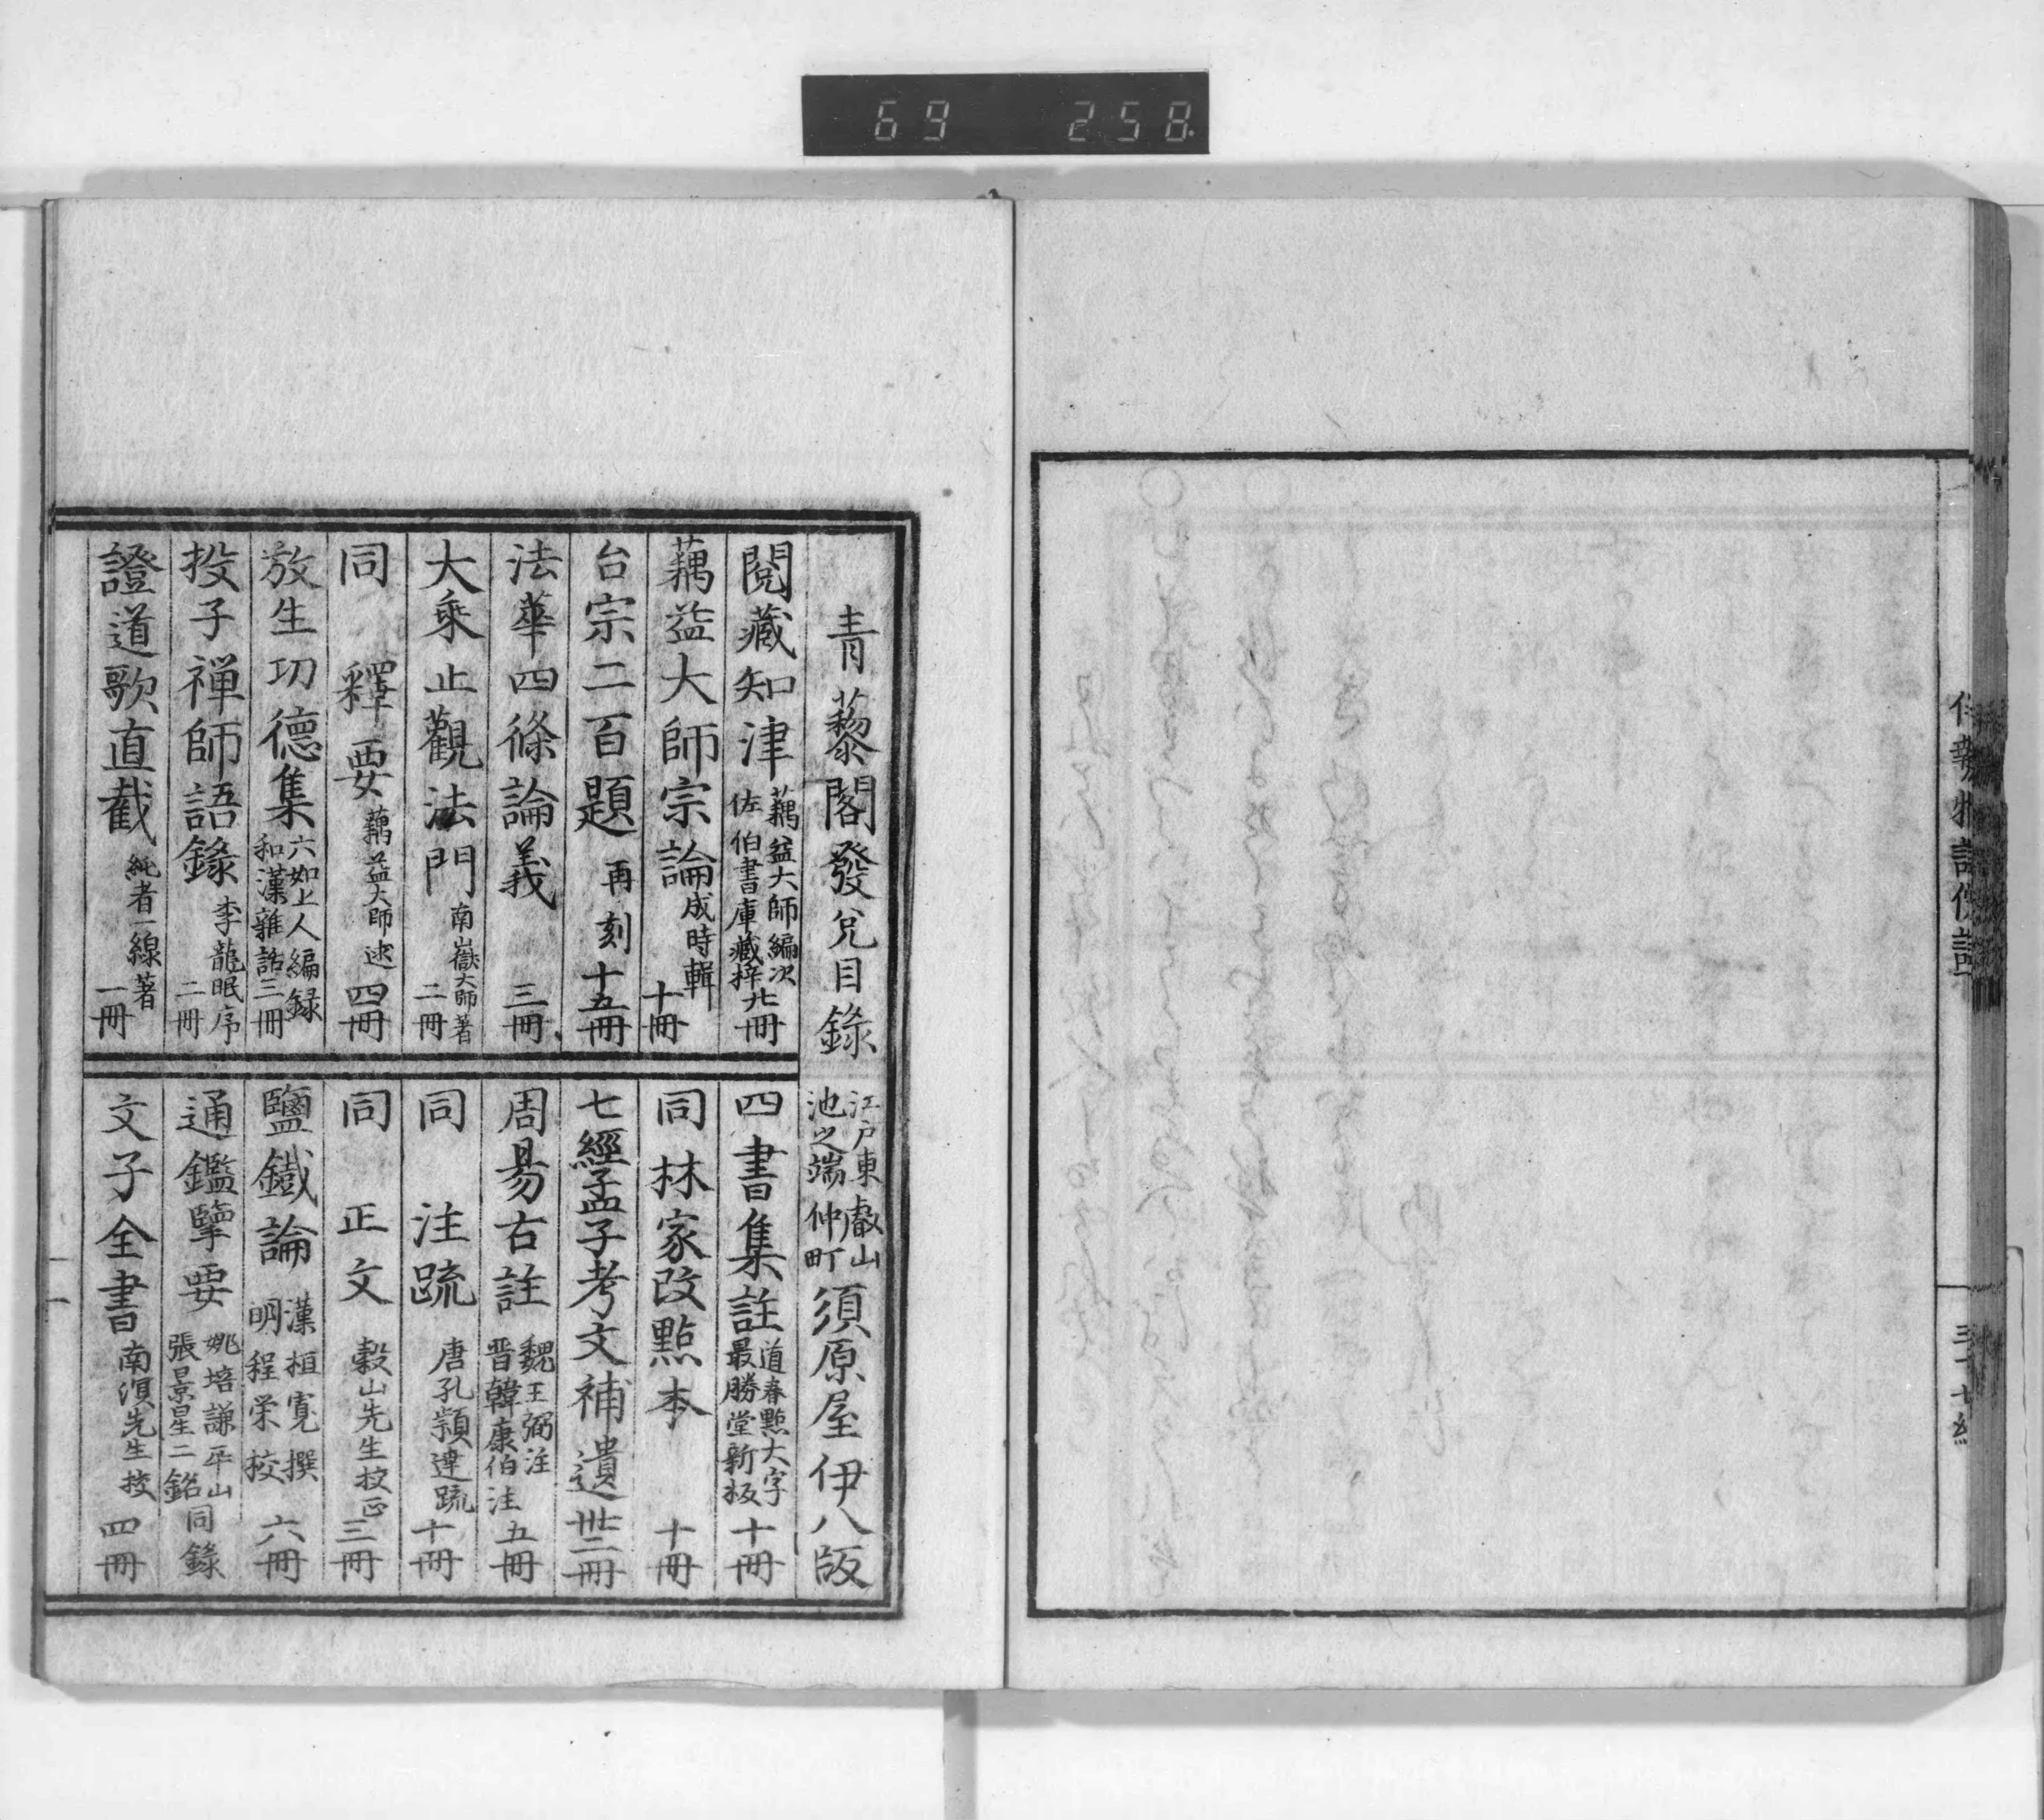 69 258
青藜閣發兌目錄 江戶東叡山池之端仲町 須原屋伊八版
閱藏知津 藕益大師編次 佐伯書庫藏梓 廿冊
藕益大師宗論 成時輯 十冊
台宗二百題 再刻 十五冊
法華四條論義 三冊
大乘止觀法門 南嶽大師著 二冊
同 釋要 藕益大師述 四冊
放生功德集 六如上人編録 和漢雜話 三冊
投子禅師語錄 李龍眠序 二冊
證道歌直截 純者一線著 一冊
四書集註 道春點大字 最勝堂新板 十冊
同 林家改點本 十冊
七經孟子考文補遺 卅二冊
周易古註 魏王弼注 晋韓康伯注 五冊
同 注疏 唐孔頴達疏 十冊
同 正文 穀山先生挍正 三冊
鹽鐵論 漢桓寬撰 明程栄挍 六冊
通鑑擥要 姚培謙平山 張景星二銘 同錄
文子全書 南溟先生挍 四冊
三十七終